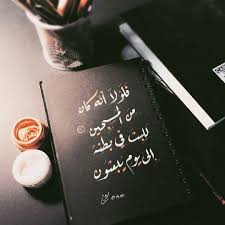 فلولا أنه كان
من المسبحين
للبث في بطنه
إلى يوم يبعثون